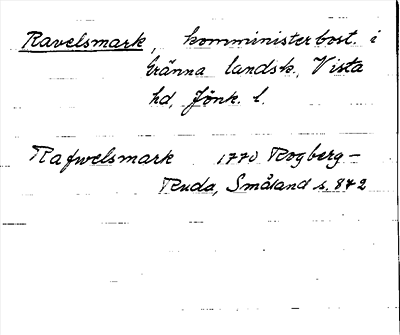 Ravelsmark, komministerbost. i
Gränna landsk., Vista
hd, Jönk. l.
Rafwelsmark 1770 Rogberg-
Ruda, Småland s. 842